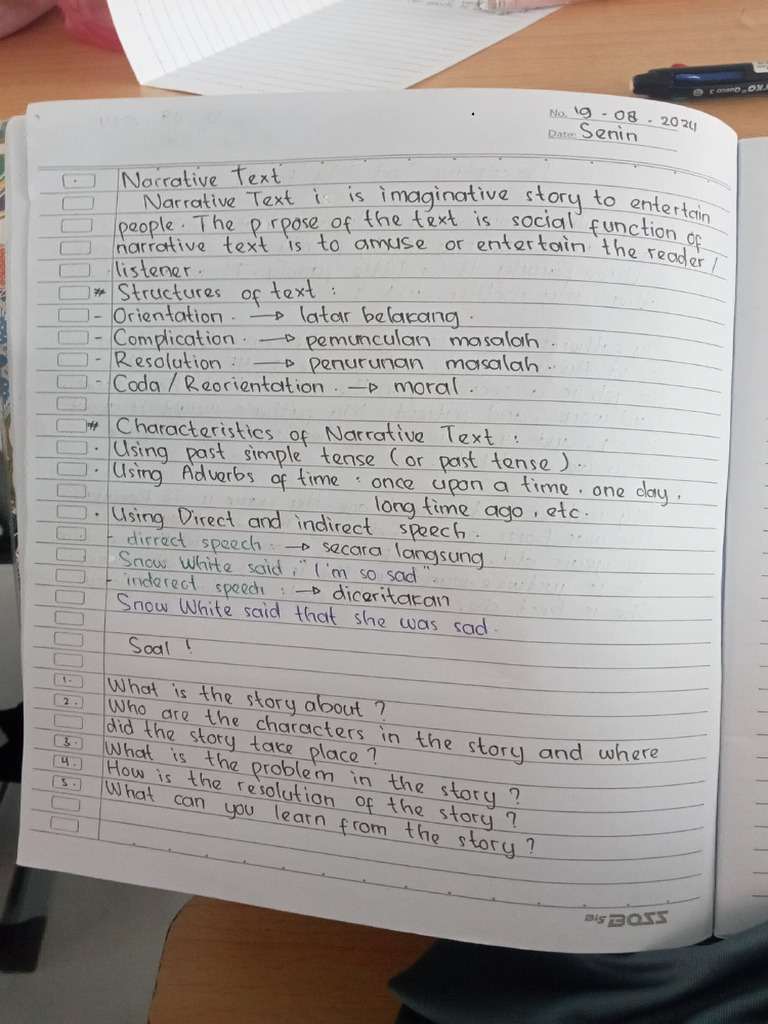 No. 19 - 08 - 2024
Date: Senin
Narrative Text
Narrative Text i is imaginative story to entertain
people. The p rpose of the text is social function of
narrative text is to amuse or entertain the reader /
listener.
* Structures of text :
- Orientation. → latar belakang.
- Complication. → pemunculan masalah.
- Resolution. → penurunan masalah.
- Coda / Reorientation. → moral.
* Characteristics of Narrative Text :
• Using past simple tense (or past tense).
• Using Adverbs of time : once upon a time, one day,
long time ago, etc.
• Using Direct and indirect speech.
- dirrect speech. → secara langsung
Snow White said, "I'm so sad"
- inderect speech : → diceritakan
Snow White said that she was sad.
Soal !
1. What is the story about ?
2. Who are the characters in the story and where
did the story take place ?
3. What is the problem in the story ?
4. How is the resolution of the story ?
5. What can you learn from the story ?
BIG BOSS